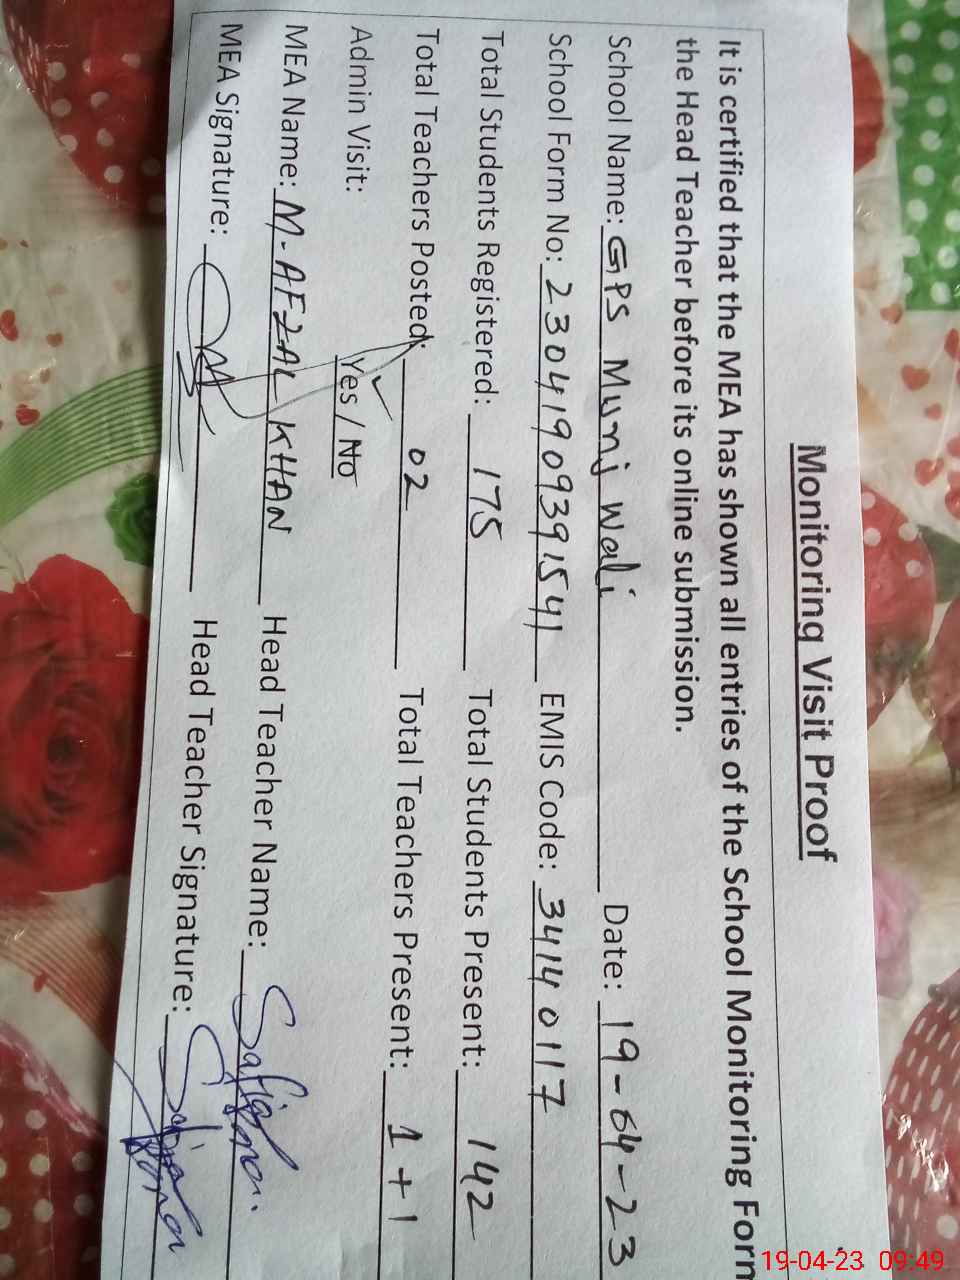 Monitoring Visit Proof
It is certified that the MEA has shown all entries of the School Monitoring Form
the Head Teacher before its online submission.
School Name: GPS Munj Wali Date: 19-04-23
School Form No: 23041909391541 EMIS Code: 34140117
Total Students Registered: 175 Total Students Present: 142
Total Teachers Posted: 02 Total Teachers Present: 1+1
Admin Visit: Yes / No
MEA Name: M.AFZAL KHAN Head Teacher Name:
MEA Signature: Head Teacher Signature:
19-04-23 09:49